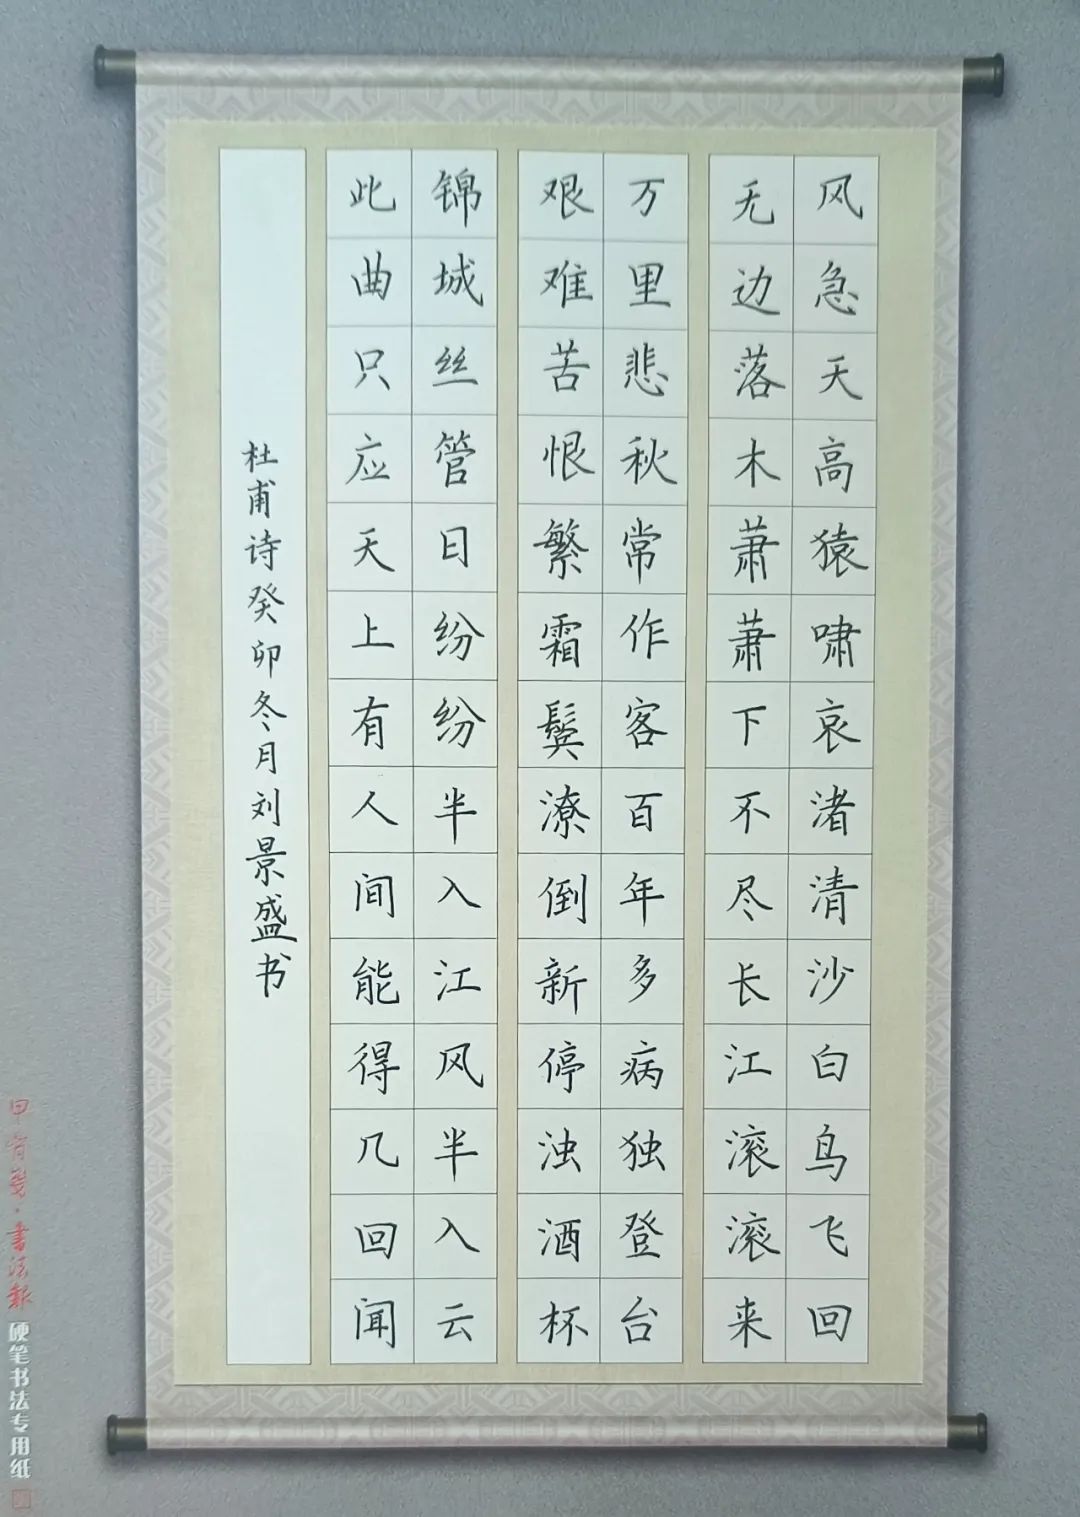 风急天高猿啸哀渚清沙白鸟飞回
无边落木萧萧下不尽长江滚滚来
万里悲秋常作客百年多病独登台
艰难苦恨繁霜鬓潦倒新停浊酒杯
锦城丝管日纷纷半入江风半入云
此曲只应天上有人间能得几回闻
杜甫诗癸卯冬月刘景盛书
书法报
硬笔书法专用纸